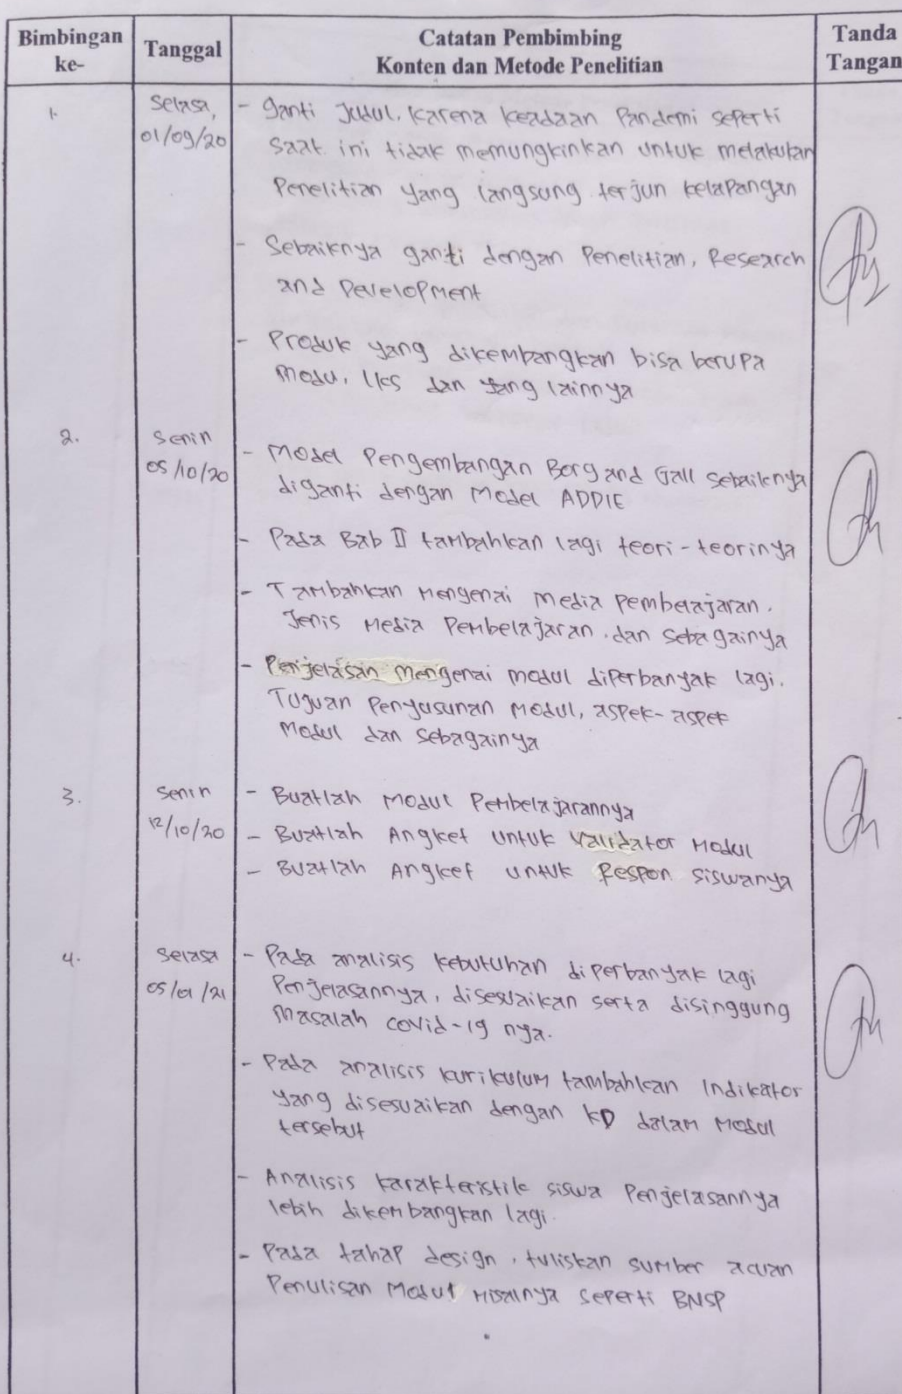 Bimbingan ke-
Tanggal
Catatan Pembimbing
Konten dan Metode Penelitian
Tanda Tangan
1.
Selasa,
01/09/20
- Ganti Judul, karena keadaan Pandemi seperti
saat ini tidak memungkinkan untuk melakukan
Penelitian yang langsung terjun kelapangan
- Sebaiknya ganti dengan Penelitian, Research
and Development
- Produk yang dikembangkan bisa berupa
Modul, LKS dan yang lainnya
2.
Senin
05/10/20
- Model Pengembangan Borg and Gall sebaiknya
diganti dengan Model ADDIE
- Pada Bab II tambahkan lagi teori-teorinya
- Tambahkan Mengenai Media Pembelajaran.
Jenis Media Pembelajaran. dan sebagainya
- Penjelasan mengenai modul diperbanyak lagi.
Tujuan Penyusunan Modul, aspek-aspek
Modul dan sebagainya
3.
Senin
12/10/20
- Buatlah Modul Pembelajarannya
- Buatlah Angket untuk Validator Modul
- Buatlah Angket untuk Respon siswanya
4.
Selasa
05/01/21
- Pada analisis kebutuhan diperbanyak lagi
Penjelasannya, disesuaikan serta disinggung
masalah covid-19 nya.
- Pada analisis kurikulum tambahkan Indikator
yang disesuaikan dengan KD dalam Modul
tersebut
- Analisis karakteristik siswa Penjelasannya
lebih dikembangkan lagi.
- Pada tahap design, tuliskan sumber acuan
Penulisan Modul Misalnya seperti BNSP